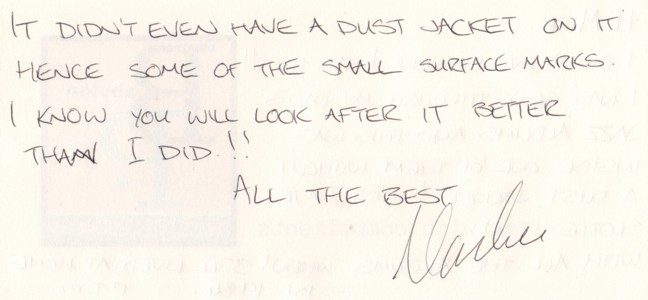 IT DIDN'T EVEN HAVE A DUST JACKET ON IT
HENCE SOME OF THE SMALL SURFACE MARKS.
I KNOW YOU WILL LOOK AFTER IT BETTER
THAN I DID!!
ALL THE BEST